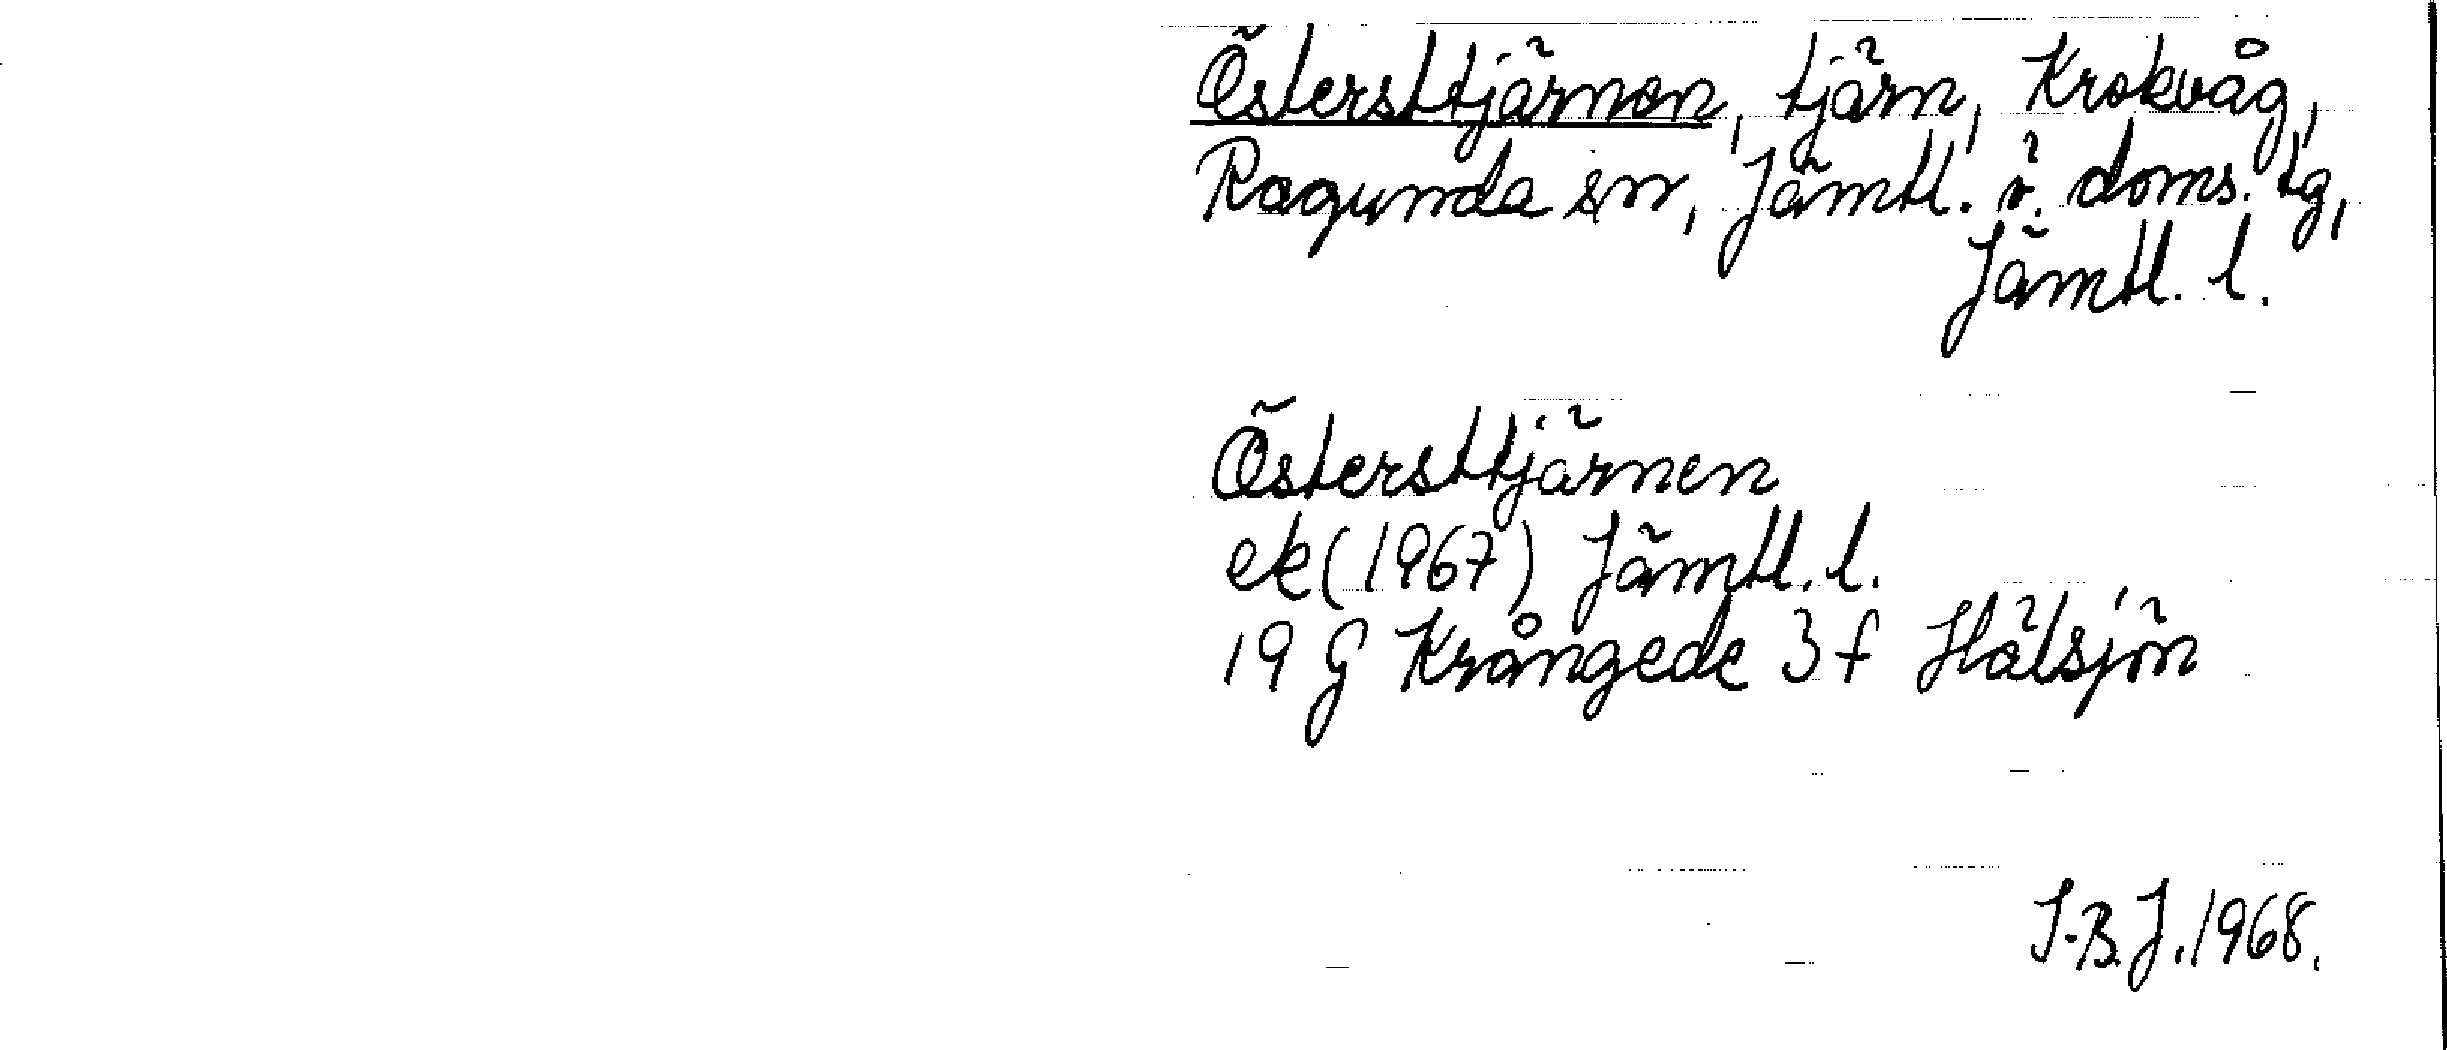 Östersttjärnen, tjärn, Krokvåg,
Ragunda sn, Jämtl. ö. doms. tg,
Jämtl. l.
Östersttjärnen
ek (1967) Jämtl. l.
19 G Krångede 3 f Hälsjön
I-B. J. 1968.